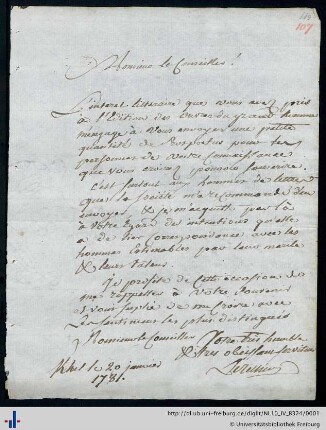 107
Monsieur le Conseiller!
L'interet litteraire que vous avez pris
à l'Edition des œuvres du grand homme
m'engage à vous envoyer une petite
quantité de Prospectus pour les
personnes de votre connaissance
que vous croirez pouvoir souscrire.
C'est surtout aux hommes de lettres
que la société m'a recommandé d'en
envoyer, & je m'acquitte par là
à votre égard des intentions qu'elle
a de lier correspondance avec les
hommes estimables par leur merite
& leurs talens
Je profite de cette occasion de
me rappeller à votre souvenir
& vous suplie de me croire avec
les sentimens les plus distingués
Monsieur le Conseiller
Votre très humble
& très obeissant serviteur
Khel le 20 janvier
1781.
http://dl.ub.uni-freiburg.de/diglit/NL10_IV_8324/0001
© Universitätsbibliothek Freiburg